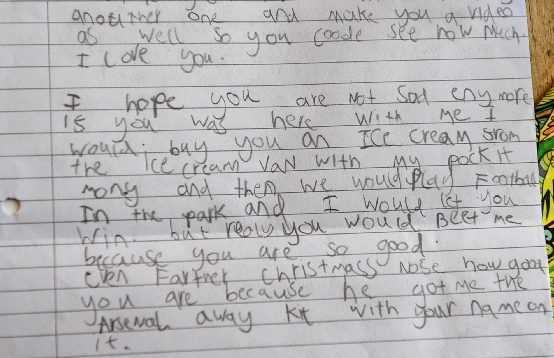 anouther one and make you a video
as well so you coode see how much
I love you.
I hope you are not sad eny more
is you was here with me I
would buy you an ice cream from
the ice cream van with my pockit
mony and then we would play Football
In the park and I would let you
win. but realy you would Beet me
because you are so good.
even Farther christmass nose how good
you are because he got me the
Arsenal away kit with your name on
it.